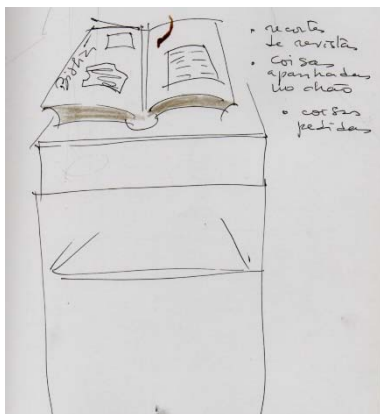 • recortes
de revistas
• coisas
apanhadas
no chão
• coisas
pedidas